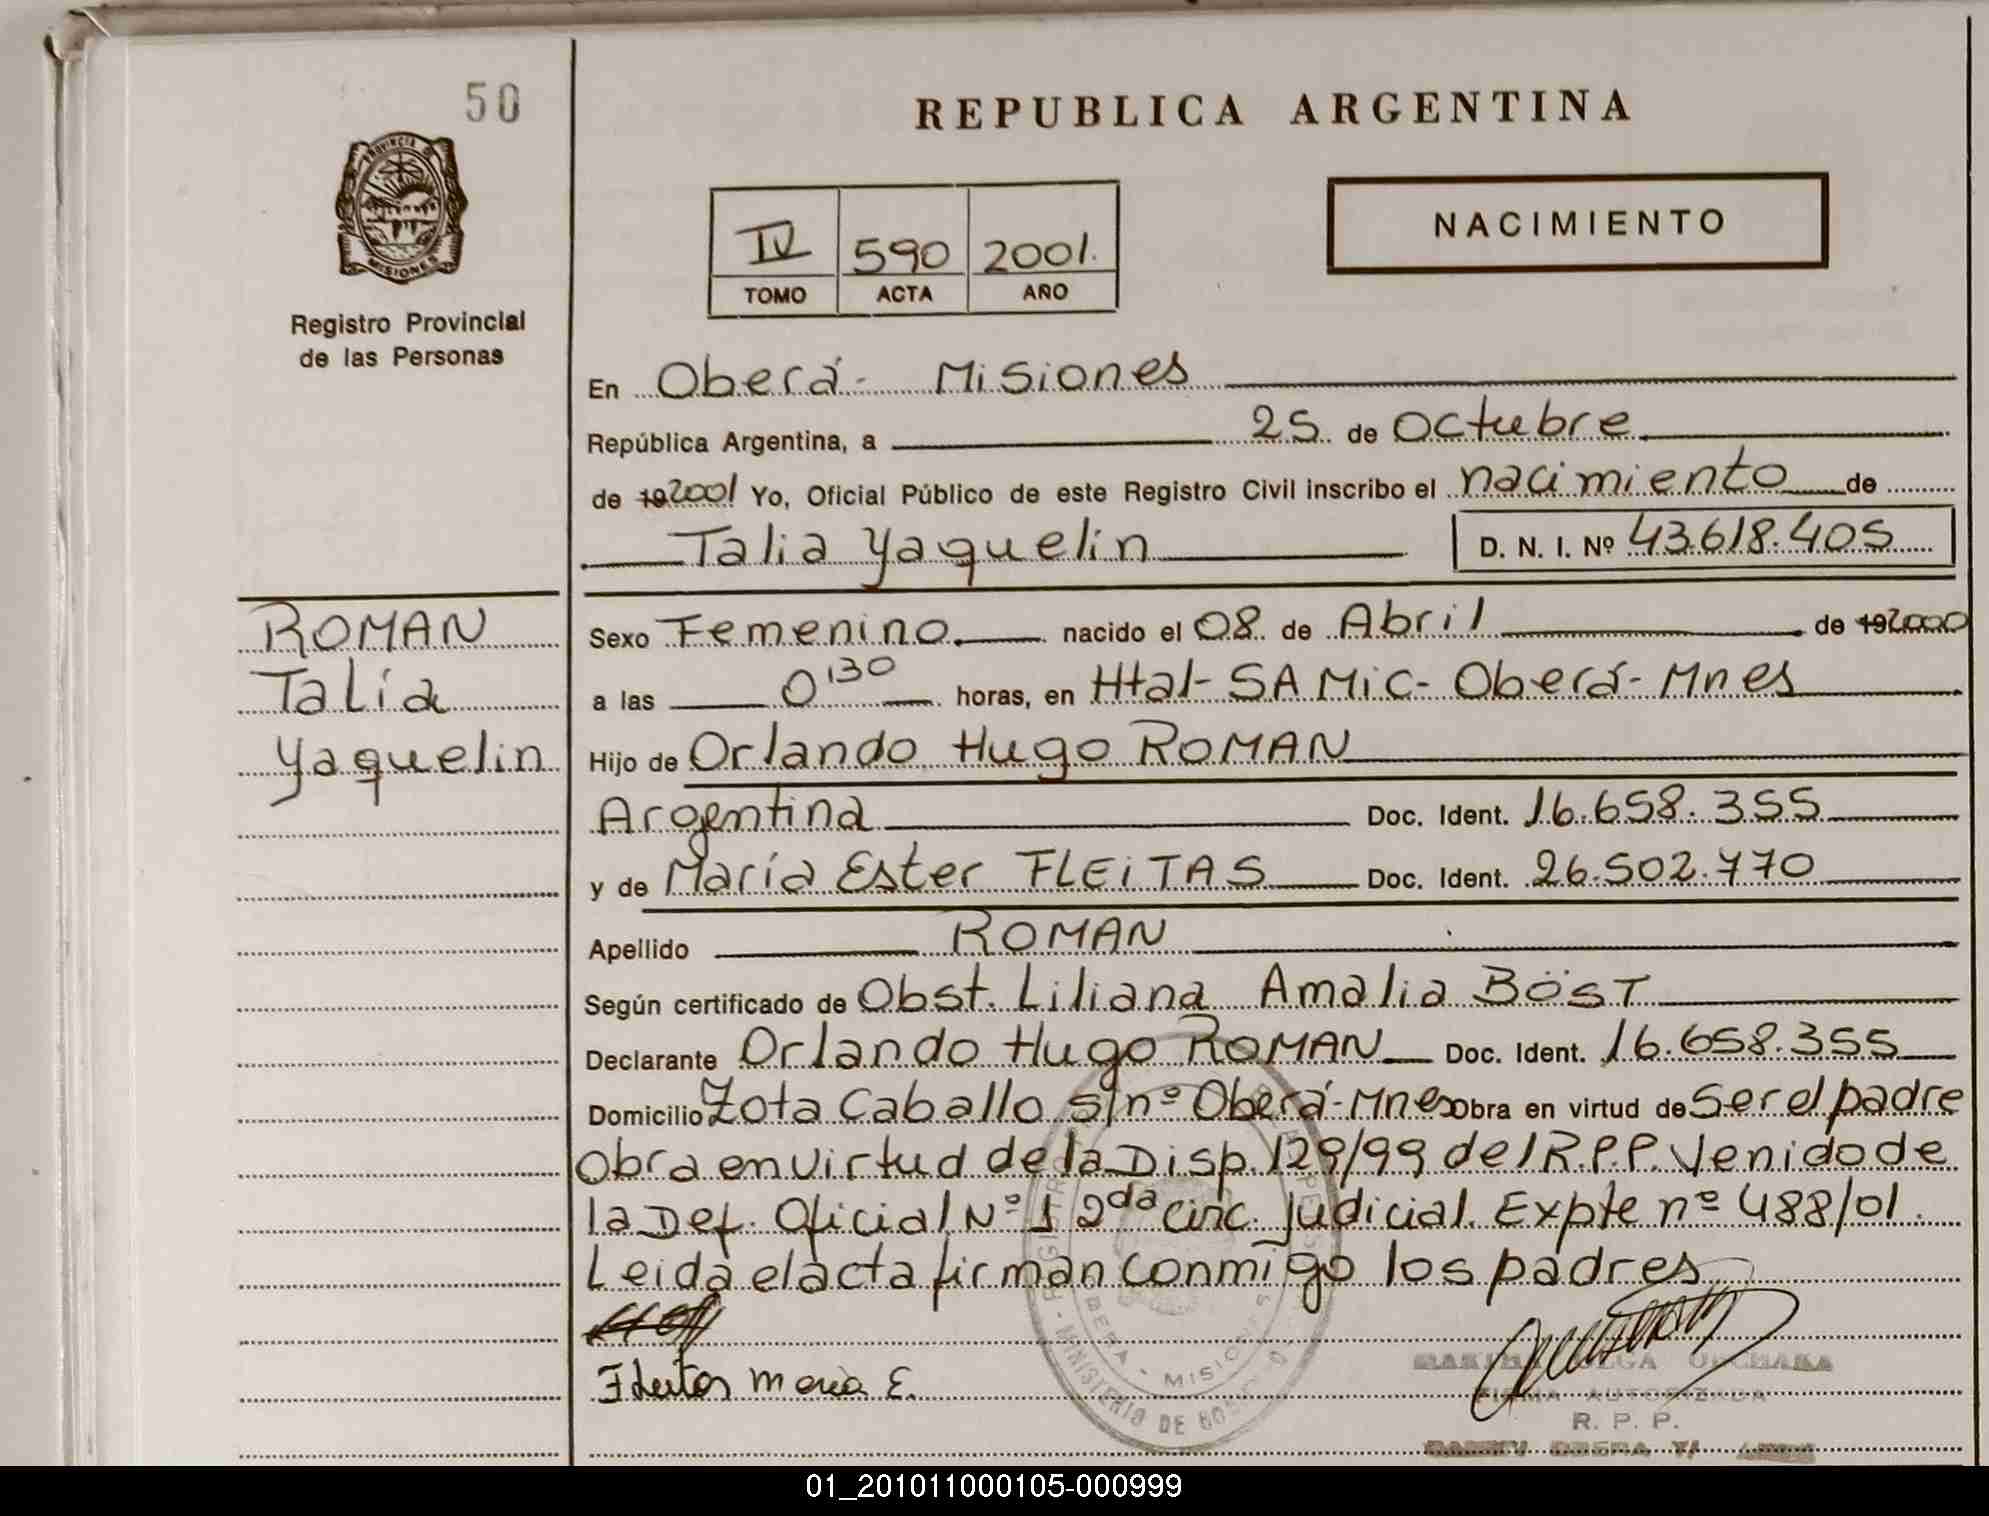 50
REPUBLICA ARGENTINA
PROVINCIA D
MISIONES
NACIMIENTO
IV 590 2001.
TOMO ACTA AÑO
Registro Provincial
de las Personas
En Oberá- Misiones
República Argentina, a 25 de Octubre
de 19 2001 Yo, Oficial Público de este Registro Civil inscribo el nacimiento de
Talia Yaquelin D. N. I. Nº 43.618.405
ROMAN
Talía
Yaquelin
Sexo Femenino. nacido el 08 de Abril de 19 2000
a las 0'30 horas, en Htal- SAMic- Oberá- Mnes
Hijo de Orlando Hugo ROMAN
Argentina Doc. Ident. 16.658.355
y de María Ester FLEiTAS Doc. Ident. 26.502.770
Apellido ROMAN
Según certificado de Obst. Liliana Amalia BÖST
Declarante Orlando Hugo ROMAN Doc. Ident. 16.658.355
Domicilio Zota Caballo s/nº Oberá-Mnes Obra en virtud de Ser el padre
Obra en virtud de la Disp. 129/99 del R.P.P. Venido de
la Def. Oficial Nº 1 2da circ. Judicial. Expte nº 488/01.
Leida el acta firman conmigo los padres
Fleitas Maria E.
MINISTERIO DE
OBERA - MISIONES
FIRMA AUTORIZADA
R. P. P.
01_201011000105-000999